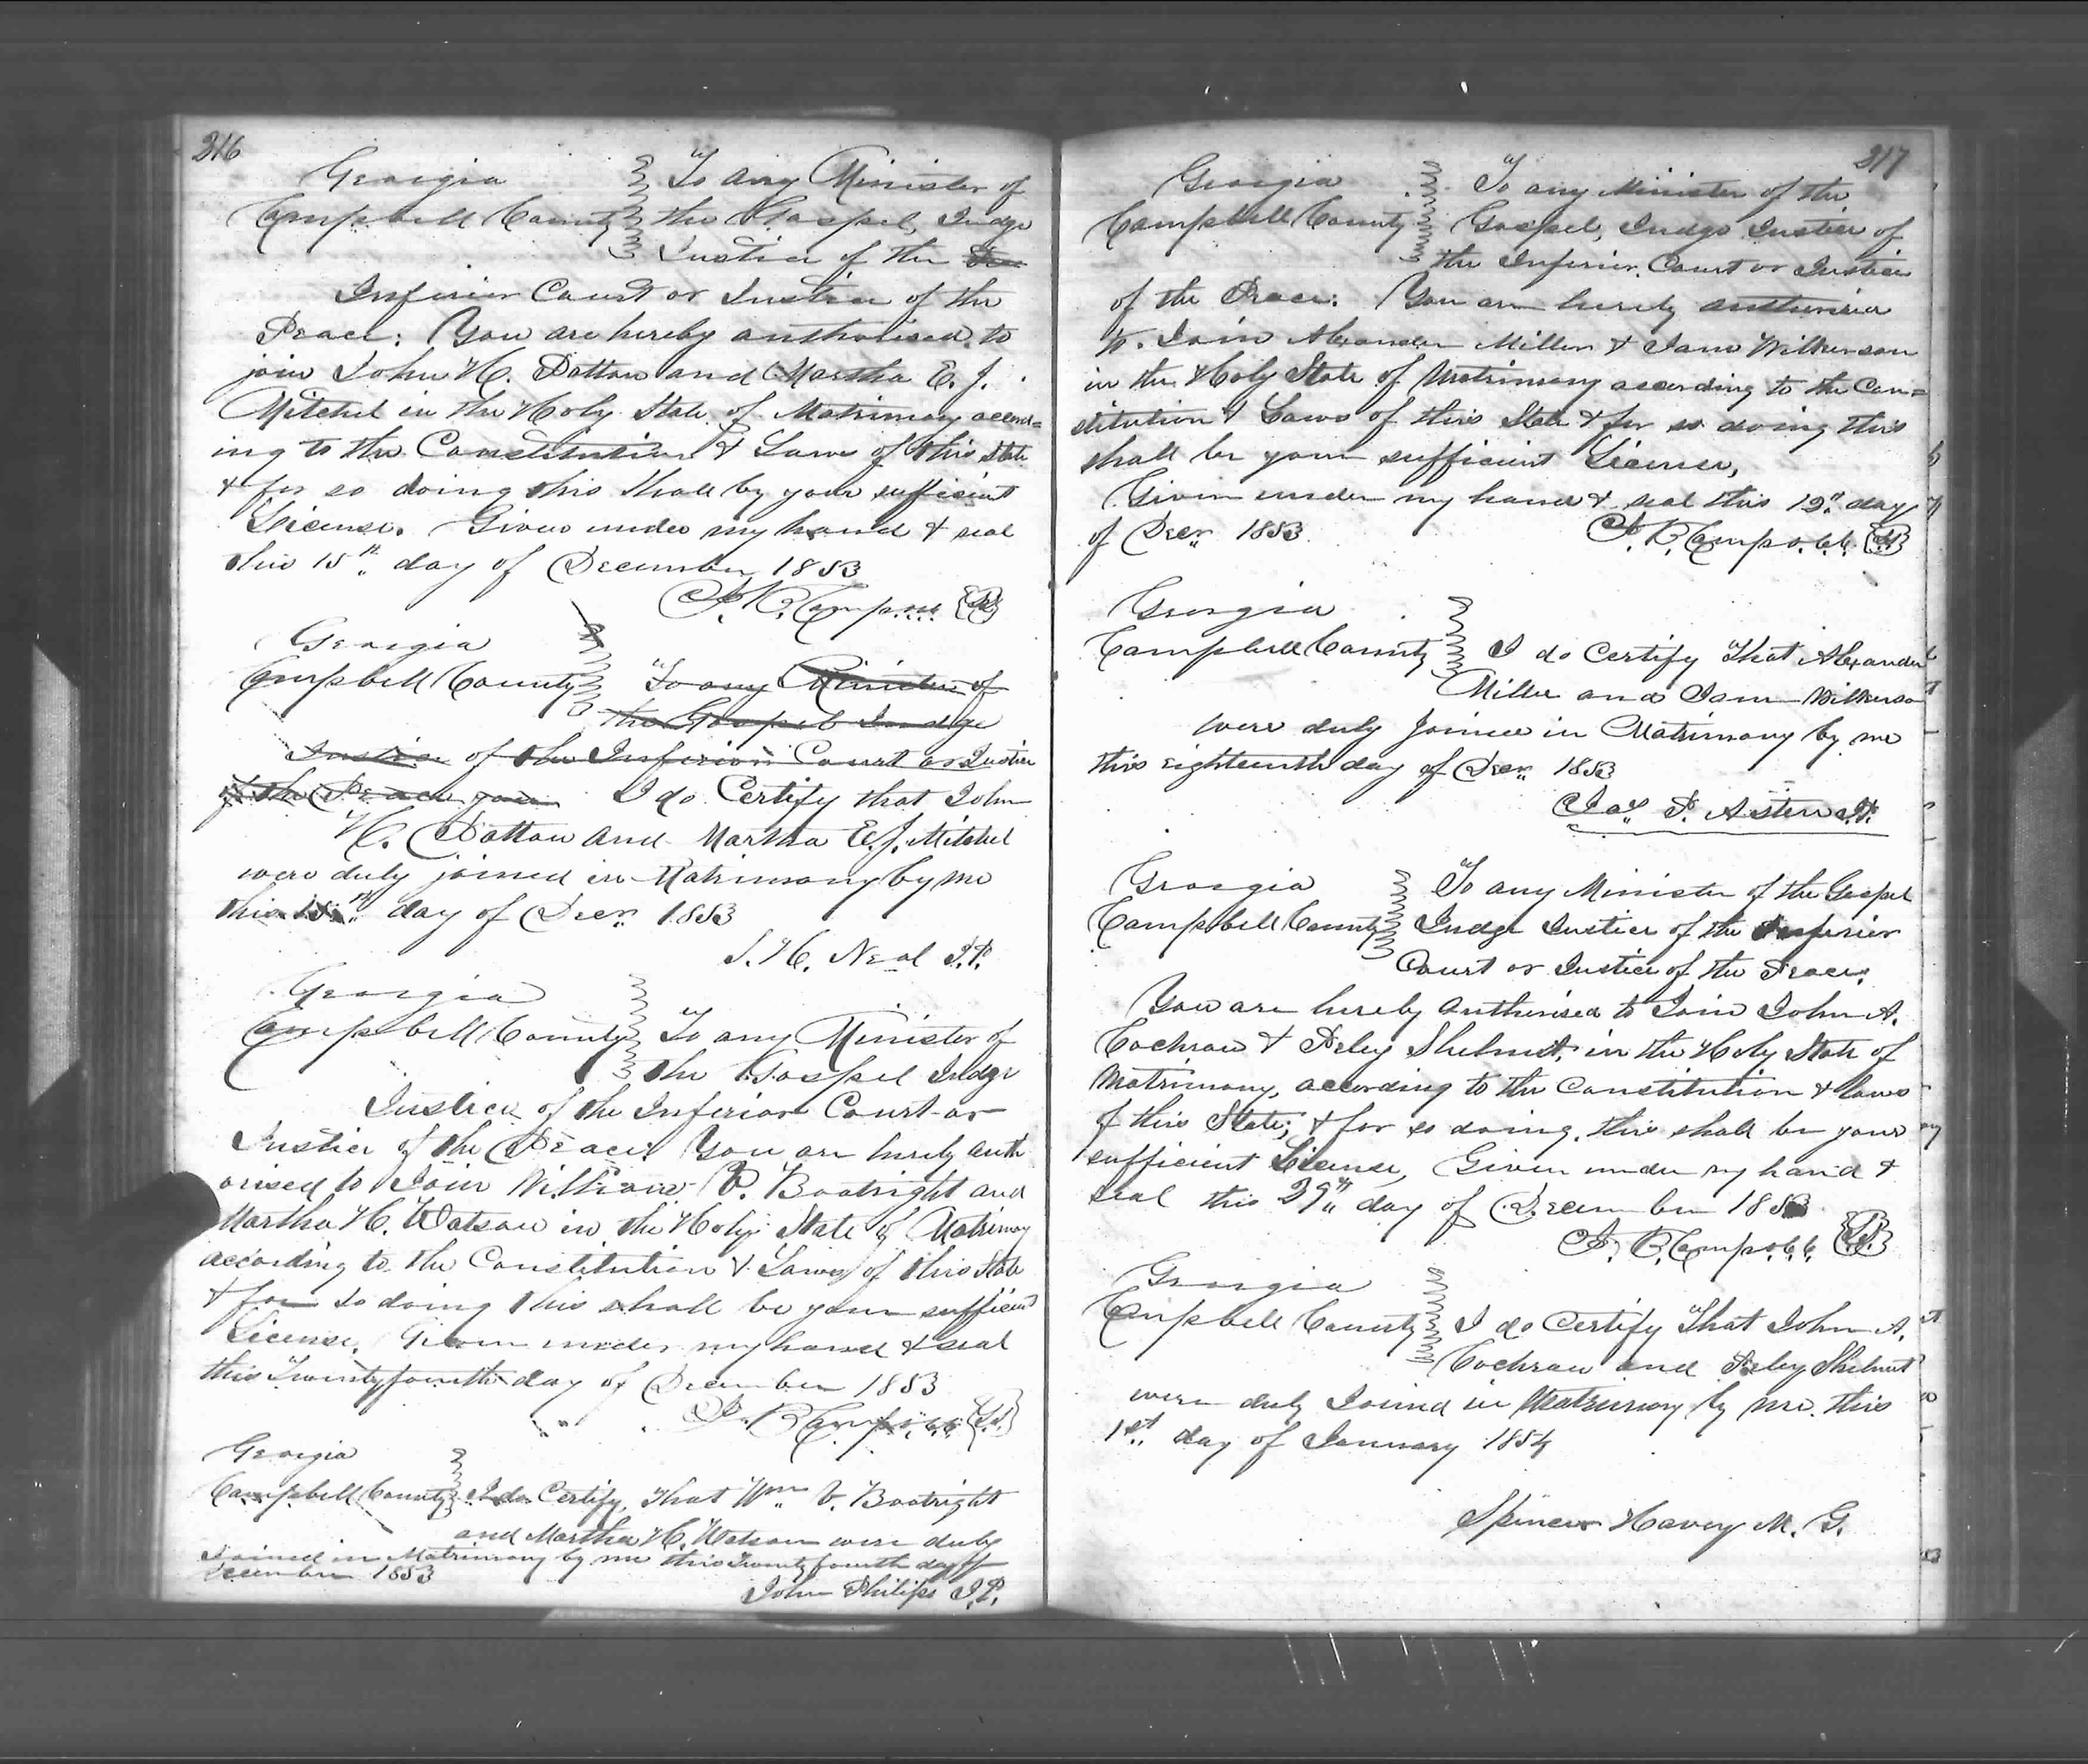 216
Georgia
Campbell County
To any Minister of
the Gospel, Judge
Justice of the
Inferior Court or Justice of the
Peace: You are hereby authorised to
join John H. Patton and Martha E. J.
Mitchel in the Holy State of Matrimony accord=
ing to the Constitution & Laws of this State
& for so doing this shall by your sufficient
License. Given under my hand & seal
this 15th day of December 1853
R. C. Camp
Georgia
Campbell County
To any Minister of
the Gospel Judge
Justice of the Inferior Court or Justice
of the Peace you I do Certify that John
H. Patton and Martha E. J. Mitchel
were duly joined in Matrimony by me
this 15th day of Decr. 1853
S. H. Neal J.P.
Georgia
Campbell County
To any Minister of
the Gospel Judge
Justice of the Inferior Court or
Justice of the Peace: You are hereby auth
orised to Join William V. Boatright and
Martha H. Watson in the Holy State of Matrimony
according to the Constitution & Laws of this State
& for so doing this shall be your sufficient
License. Given under my hand & seal
this Twenty fourth day of December 1853
R. C. Camp
Georgia
Campbell County I do Certify, That Wm. V. Boatright
and Martha H. Watson were duly
Joined in Matrimony by me this Twenty fourth day of
December 1853
John Philips J.P.
217
Georgia
Campbell County
To any Minister of the
Gospel, Judge Justice of
the Inferior Court or Justice
of the Peace: You are hereby authorised
to Join Alexander Miller & Jane Wilkerson
in the Holy State of Matrimony according to the Con=
stitution & Laws of this State & for so doing this
shall be your sufficient License,
Given under my hand & seal this 12th day
of Decr. 1853
R. C. Camp
Georgia
Campbell County
I do Certify That Alexander
Miller and Jane Wilkerson
were duly Joined in Matrimony by me
this eighteenth day of Decr. 1853
Jas. P. Austin J.P.
Georgia
Campbell County
To any Minister of the Gospel
Judge Justice of the Inferior
Court or Justice of the Peace:
You are hereby Authorised to Join John A.
Cochran & Arley Shelnut, in the Holy State of
Matrimony, according to the Constitution & Laws
of this State; & for so doing, this shall be your
sufficient License, Given under my hand &
seal this 29th day of December 1853
R. C. Camp
Georgia
Campbell County
I do Certify That John A.
Cochran and Arley Shelnut
were duly Joined in Matrimony by me, this
1st day of January 1854
Spencer Havey M. G.